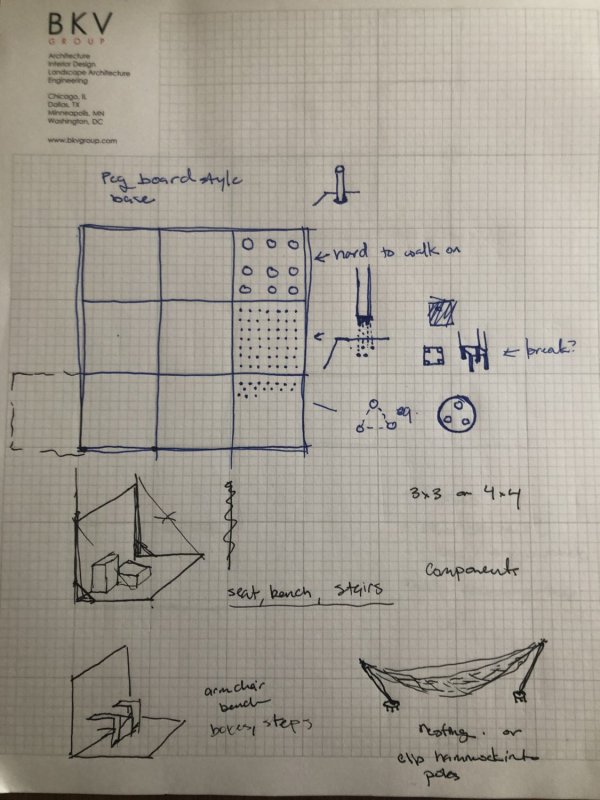 BKV
GROUP
Architecture
Interior Design
Landscape Architecture
Engineering
Chicago, IL
Dallas, TX
Minneapolis, MN
Washington, DC
www.bkvgroup.com
Peg board style
base
hard to walk on
break?
eq.
3x3 or 4x4
components
seat, bench, stairs
armchair
bench
boxes, steps
or
clip hammock into
poles